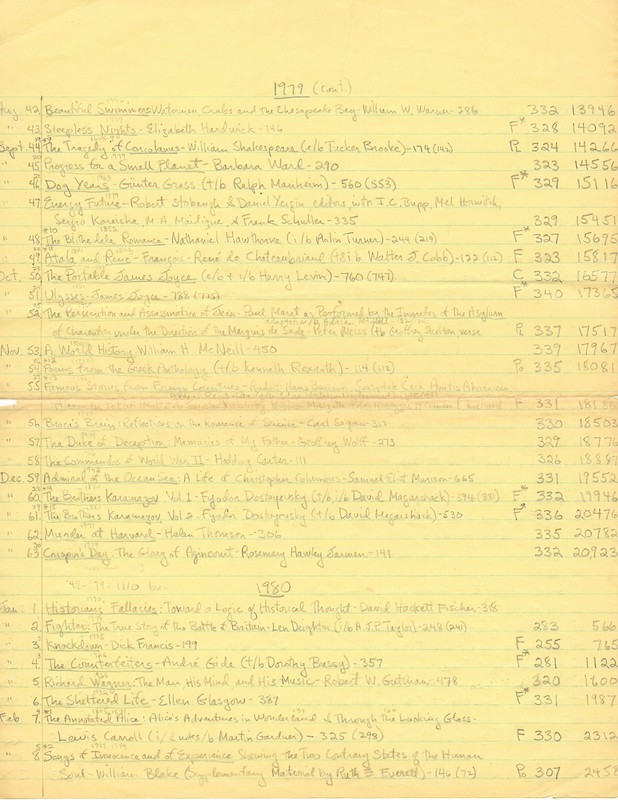 1979 (cont.)
Aug 42 Beautiful Swimmers: Watermen, Crabs and the Chesapeake Bay - William W. Warner - 286 332 13946
" 43 Sleepless Nights - Elizabeth Hardwick - 146 F* 328 14092
Sept. 44 The Tragedy of Coriolanus - William Shakespeare (e/b Tucker Brooke) - 174 (142) Pl 324 14266
" 45 Progress for a Small Planet - Barbara Ward - 290 323 14556
" 46 Dog Years - Günter Grass (t/b Ralph Manheim) - 560 (553) F* 329 15116
" 47 Energy Future - Robert Stobaugh & Daniel Yergin editors, with I.C. Bupp, Mel Horwitch,
Sergio Koreisha, M.A. Maidique, & Frank Schuller - 335 329 15451
" 48 The Blithedale Romance - Nathaniel Hawthorne (i/b Arlin Turner) - 244 (219) F* 327 15695
" 49 Atala and René - François-René de Chateaubriand (t&i b. Walter J. Cobb) - 122 (112) F 323 15817
Oct. 50 The Portable James Joyce (e/b & i/b Harry Levin) - 760 (747) C 332 16577
" 51 Ulysses - James Joyce - 788 F* 340 17365
" 52 The Persecution and Assassination of Jean-Paul Marat as Performed by the Inmates of the Asylum
of Charenton under the Direction of the Marquis de Sade - Peter Weiss (t/b Geoffrey Skelton, verse Pl 337 17517
Nov. 53 A World History - William H. McNeill - 450 339 17967
" 54 Poems from the Greek Anthology (t/b Kenneth Rexroth) - 114 (112) Po 335 18081
" 55 Famous Stories from Foreign Countries -
F 331
" 56 Broca's Brain: Reflections on the Romance of Science - Carl Sagan 330 18503
" 57 The Duke of Deception: Memories of My Father - Geoffrey Wolff - 273 329 18776
" 58 The Commandos of World War II - Hodding Carter - 111 326 18887
Dec. 59 Admiral of the Ocean Sea: A Life of Christopher Columbus - Samuel Eliot Morison - 665 331 19552
" 60 The Brothers Karamazov, Vol 1 - Fyodor Dostoyevsky (t/b, i/b David Magarshack) - 394 F* 332 19946
" 61 The Brothers Karamazov, Vol 2 - Fyodor Dostoyevsky (t/b David Magarshack) - 530 F* 336 20476
" 62 Murder at Harvard - Helen Thomson - 306 335 20782
" 63 Crispin's Day: The Glory of Agincourt - Rosemary Hawley Jarman - 141 332 20,923
1980
Jan. 1 Historians' Fallacies: Toward a Logic of Historical Thought - David Hackett Fischer - 318
" 2 Fighter: The True Story of the Battle of Britain - Len Deighton (i/b A.J.P. Taylor) - 248 (241) 283 566
" 3 Knockdown - Dick Francis - 199 F 255 765
" 4 The Counterfeiters - André Gide (t/b Dorothy Bussy) - 357 F* 281 1122
" 5 Richard Wagner: The Man, His Mind and His Music - Robert W. Gutman - 478 320 1600
" 6 The Sheltered Life - Ellen Glasgow - 387 F* 331 1987
Feb 7 The Annotated Alice: Alice's Adventures in Wonderland & Through the Looking Glass -
Lewis Carroll (i/& notes/b Martin Gardner) - 325 (298) F 330 2312
" 8 Songs of Innocence and of Experience Shewing the Two Contrary States of the Human
Soul - William Blake (Supplementary Material by Ruth E Everett) - 146 (72) Po 307 2458